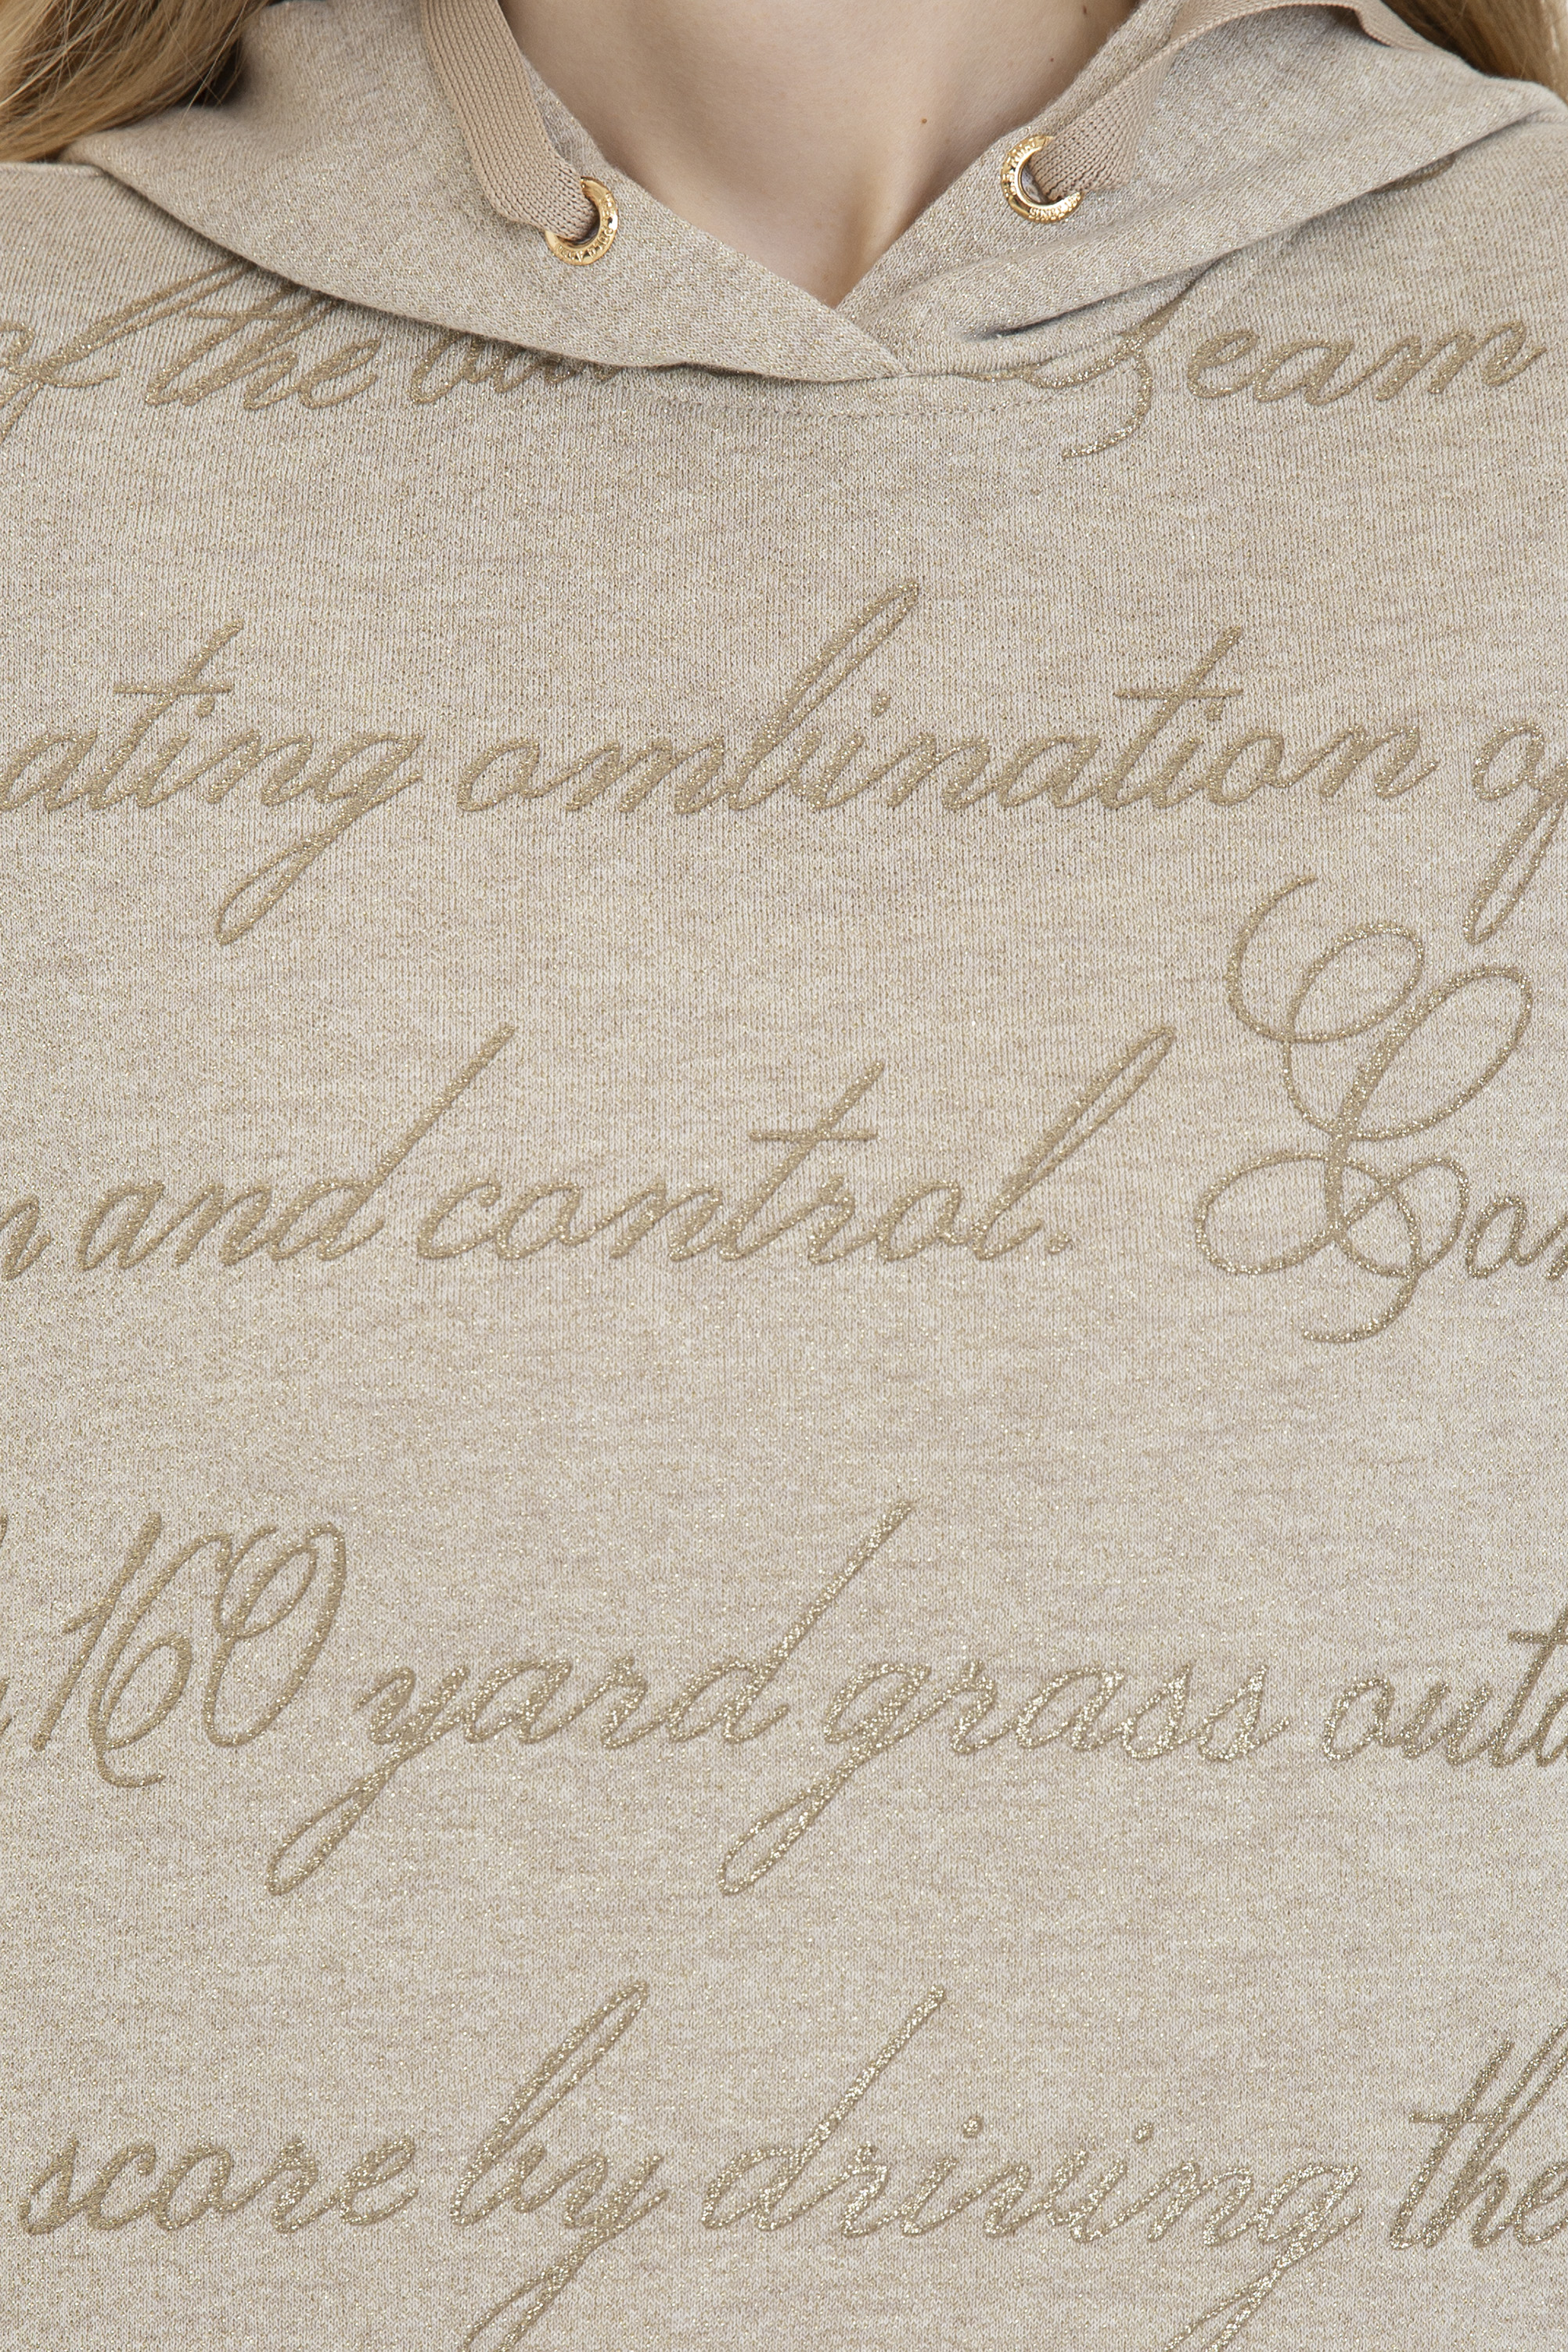 of the eam
ating ombination of
and control.
160 yard grass outd
score by driving the